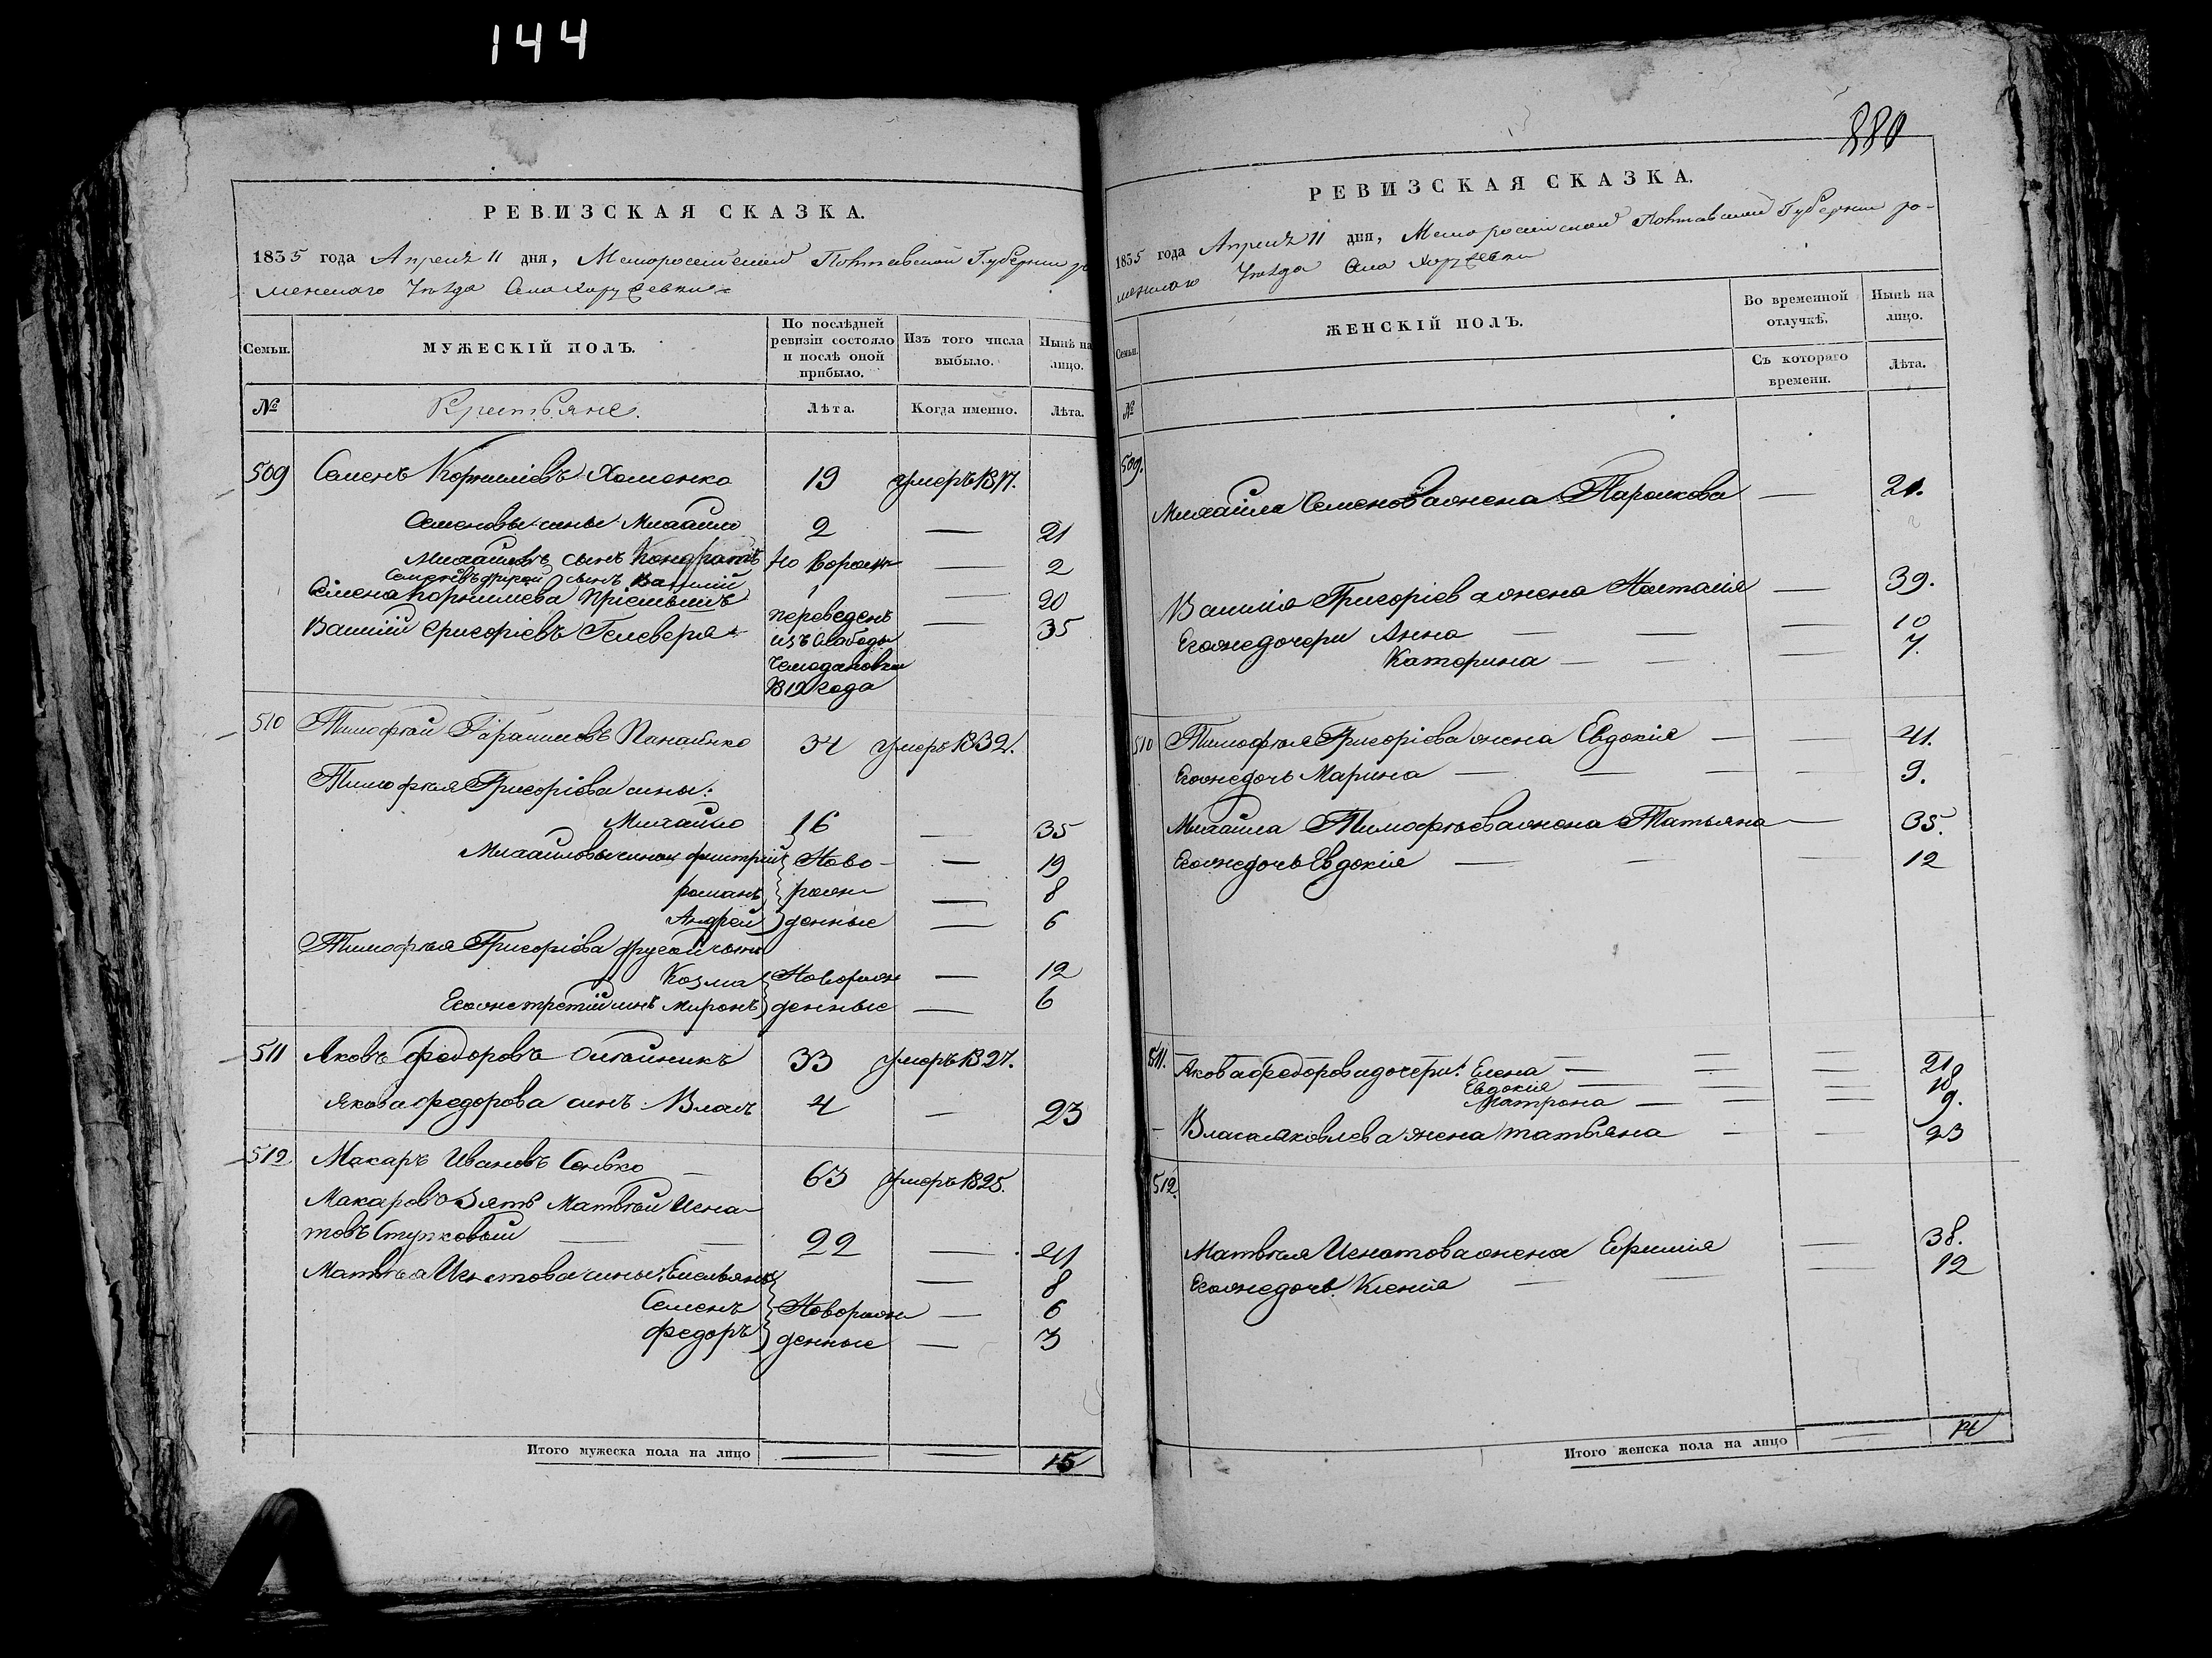 144
РЕВИЗСКАЯ СКАЗКА.
1835 года Апреля 11 дня, Малоросійской Полтавской Губерніи ро-
менскаго Уѣзда Села Коружевки
Семьи.
МУЖЕСКІЙ ПОЛЪ.
По послѣдней ревизіи состояло и послѣ оной прибыло.
Изъ того числа выбыло.
Нынѣ на лицо.
№
Крестьяне.
Лѣта.
Когда именно.
Лѣта.
509 Семенъ Корниліевъ Хоменко 19 умеръ 1817.
Семеновы сыны Михайло 2 — 21
Михайловъ сынъ Кондратъ Но ворожн — 2
Семеновъ другой сынъ Василій 1 — 20
Семена Корнилиева Пріемышъ
Василій Григоріевъ Гелеверя переведенъ — 35
изъ Слободы
Чемодановки
1812 года
510 Тимофѣй Панайнко 34 умеръ 1832.
Тимофѣя Григоріева сыны:
Михайло 16 — 35
Михайловы сыны Дмитрій Ново- — 19
романъ рожн — 8
Андрей денные — 6
Тимофѣя Григоріева другой сынъ
Козма Новорожн — 12
Егожне третій сынъ Миронъ денные — 6
511 Яковъ Федоровъ Олійникъ 33 умеръ 1827.
Якова Федорова сынъ Власъ 4 — 23
512 Макаръ Ивановъ Сенько — 63 умеръ 1825.
Макаровъ Зять Матвѣй Игна-
товъ Ступковый — — 22 — 41
Матвѣя Игнатова сыны, Емельянъ — 8
Семенъ Новорожн — 6
Федоръ денные — 3
Итого мужеска пола на лицо — — 15
880
РЕВИЗСКАЯ СКАЗКА.
1835 года Апреля 11 дня, Малоросійской Полтавской Губерніи ро-
менскаго Уѣзда Села Коружевки
Семьи.
ЖЕНСКІЙ ПОЛЪ.
Во временной отлучкѣ.
Нынѣ на лицо.
Съ котораго времени.
Лѣта.
№
509.
Михайла Семенова жена Парасковя — 21.
Василія Григоріева жена Наталія — 39.
Егожне дочери Анна — — — 10
Катерина — — — 7.
510 Тимофѣя Григоріева жена Евдокія — — 41.
Егожне дочь Марина — — — — 9.
Михайла Тимофѣева жена Татьяна — 35.
Егожне дочь Евдокія — — — 12
511. Якова Федорова дочери: Елена — — — 21
Евдокія — — — 18
Матрона — — — 9.
Власа Яковлева жена татьяна — — 23
512.
Матвѣя Игнатова жена Ефимія — 38.
Егожне дочь Ксенія — — — 12
Итого женска пола на лицо — 14